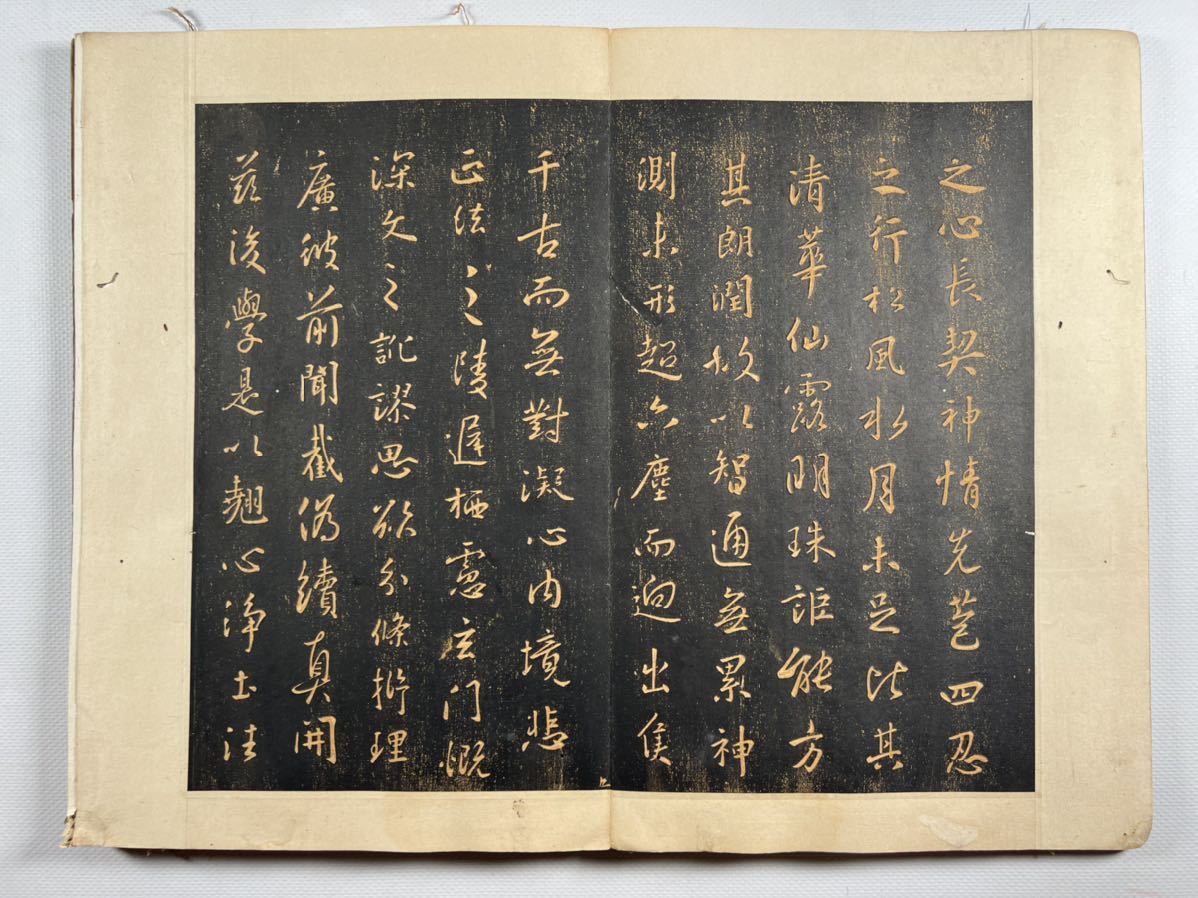 之心長契神情先苞四忍
之行松風水月未足比其
清華仙露明珠詎能方
其朗潤故以智通無累神
測未形超六塵而迥出隻
千古而無對凝心內境悲
正法之陵遲栖慮玄門慨
深文之訛謬思欲分條析理
廣彼前聞截偽續真開
茲後學是以翹心淨土往